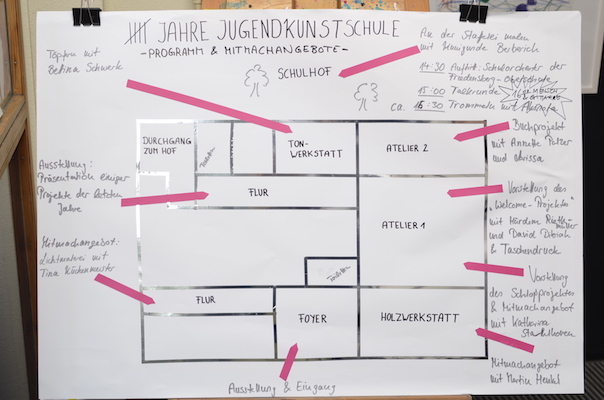 JAHRE JUGENDKUNSTSCHULE
- PROGRAMM & MITMACHANGEBOTE -
SCHULHOF
Töpfern mit
Bettina Schwerk
An der Staffelei malen
mit Hemigunde Berberich
14:30 Auftritt: Schulorchester der
Friedensberg-Oberschule
15:00 Talkrunde
ca. 16:30 Trommeln mit
DURCHGANG
ZUM HOF
Toiletten
TON-
WERKSTATT
ATELIER 2
Buchprojekt
mit Annette
und
Ausstellung:
Präsentation einiger
Projekte der letzten
Jahre
FLUR
ATELIER 1
Vorstellung des
"Welcome-Projektes"
mit
und David
& Taschendruck
Mitmachangebot:
Lichtmalerei mit
Tina Küchenmeister
Toiletten
Vorstellung
des Schloßprojektes
& Mitmachangebot
mit Katharina
FLUR
FOYER
HOLZWERKSTATT
Mitmachangebot
mit Martin
Ausstellung & Eingang